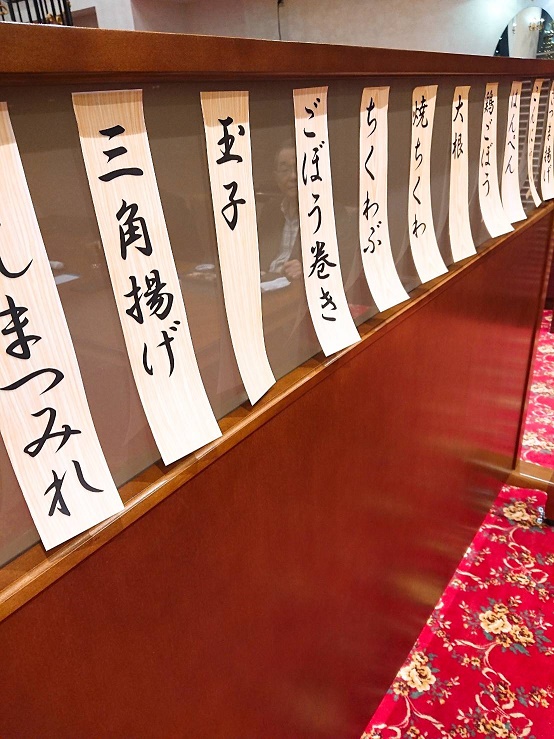 揚げ
はんぺん
鶏ごぼう
大根
焼ちくわ
ちくわぶ
ごぼう巻き
玉子
三角揚げ
まつみれ